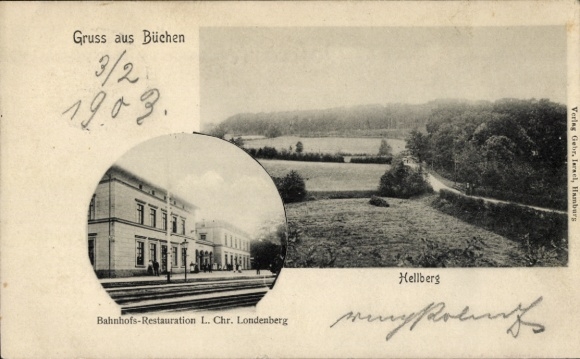 Gruss aus Büchen
3/2
1903.
Verlag Gebr. Israel, Hamburg
Hellberg
Bahnhofs-Restauration L. Chr. Londenberg